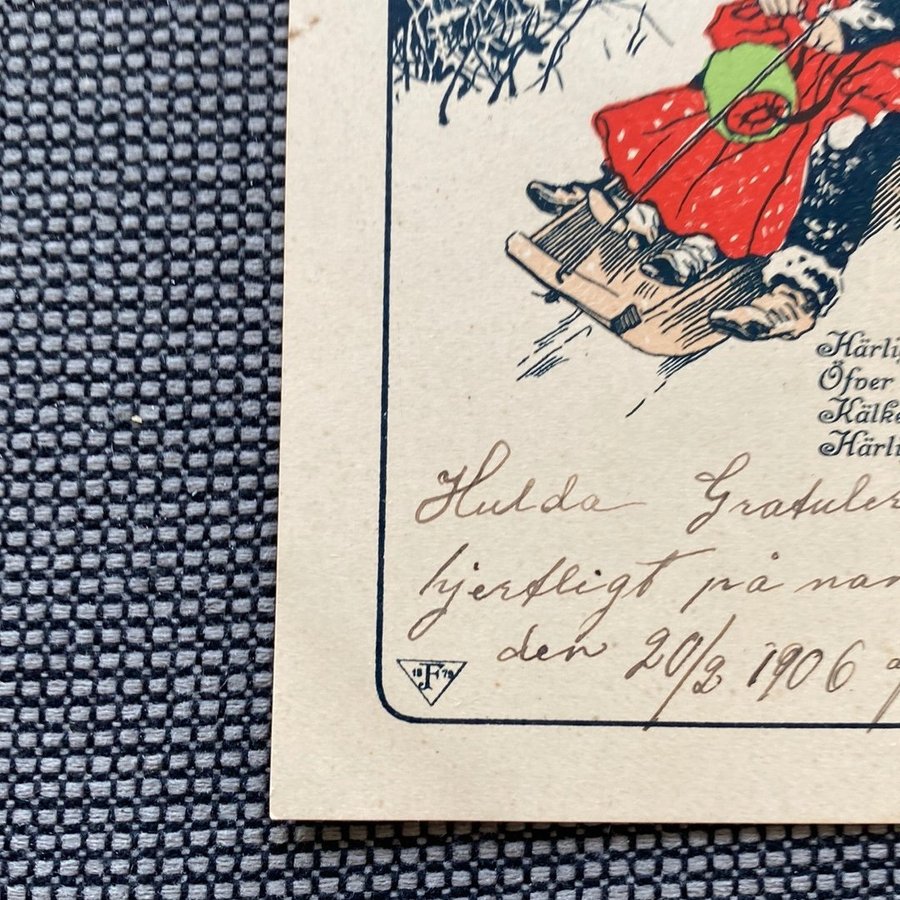 Härli
Öfver
Kälke
Härli
Hulda Gratuler
hjertligt på nam
den 20/2 1906
18 F 79